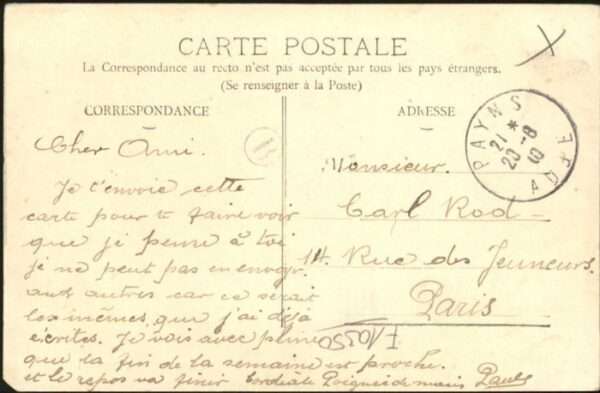 CARTE POSTALE
La Correspondance au recto n'est pas acceptée par tous les pays étrangers.
(Se renseigner à la Poste)
CORRESPONDANCE
Cher Ami.
Je t'envoie cette
carte pour te faire voir
que je pense à toi
je ne peut pas en envoyer
aux autres car ce serait
les mêmes que j'ai déjà
écrites. Je vois avec
que la fin de la semaine est proche.
et le repos va finir Cordiale Poignée de mains Paul
ADRESSE
Monsieur.
Carl Rod
14. Rue des Jeuneurs.
Paris
PAYNS
21 *
20 -8
AUBE